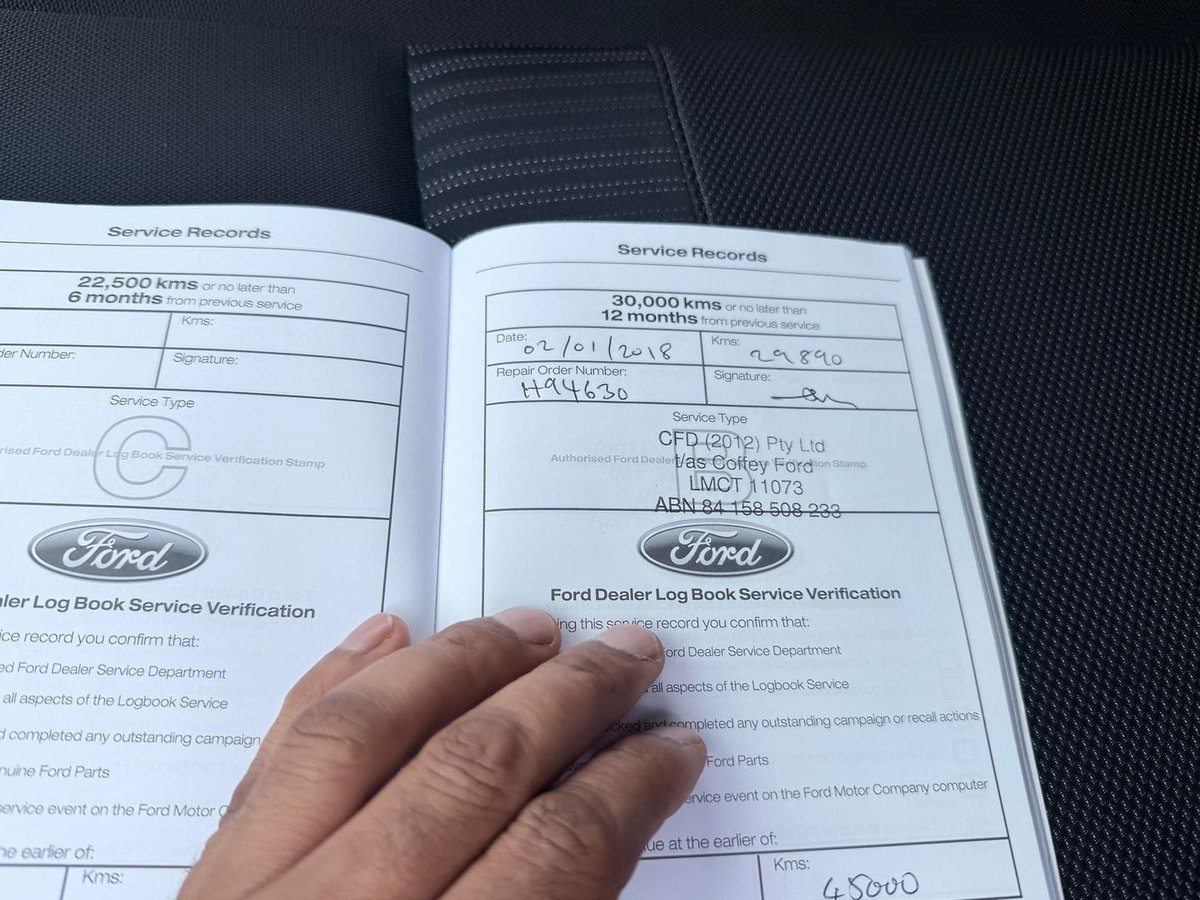 Service Records
22,500 kms or no later than
6 months from previous service
Kms:
der Number:
Signature:
Service Type
C
rised Ford Dealer Log Book Service Verification Stamp
Ford
aler Log Book Service Verification
ice record you confirm that:
ed Ford Dealer Service Department
all aspects of the Logbook Service
d completed any outstanding campaign
nuine Ford Parts
service event on the Ford Motor C
he earlier of:
Kms:
Service Records
30,000 kms or no later than
12 months from previous service
Date: 02/01/2018
Kms: 29890
Repair Order Number: H94630
Signature:
Service Type
B
CFD (2012) Pty Ltd
Authorised Ford Dealer Verification Stamp
t/as Coffey Ford
LMCT 11073
ABN 84 158 508 233
Ford
Ford Dealer Log Book Service Verification
ing this service record you confirm that:
Ford Dealer Service Department
all aspects of the Logbook Service
cked and completed any outstanding campaign or recall actions
Ford Parts
ervice event on the Ford Motor Company computer
ue at the earlier of:
Kms: 45000